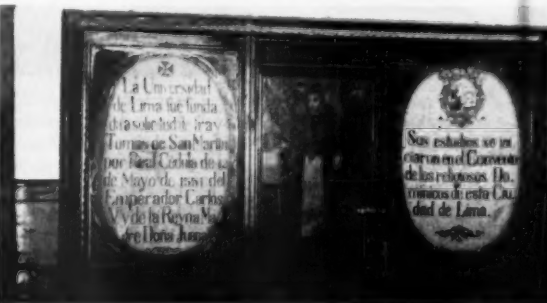 La Universidad
de Lima fue funda
da a solicitud de fray
Tomas de San Martin
por Real Cédula de 12
de Mayo de 1551 del
Emperador Carlos
V y de la Reyna Ma
dre Doña Juana
Sus estudios se ini
ciaron en el Convento
de los religiosos Do
minicos de esta Ciu
dad de Lima.